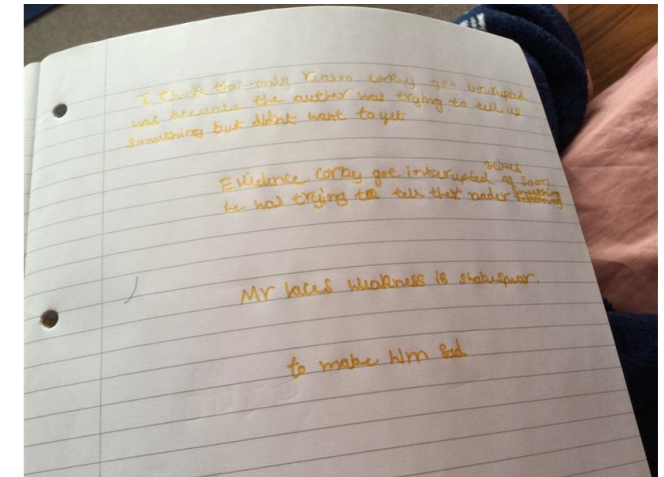 I think the only reason corky got interupted
was because the auther was trying to tell us
something but didnt want to yet
Evidence corky got interupted as soon
he was trying to tell the reader
Mr laces weakness is shakespear.
to make him sad